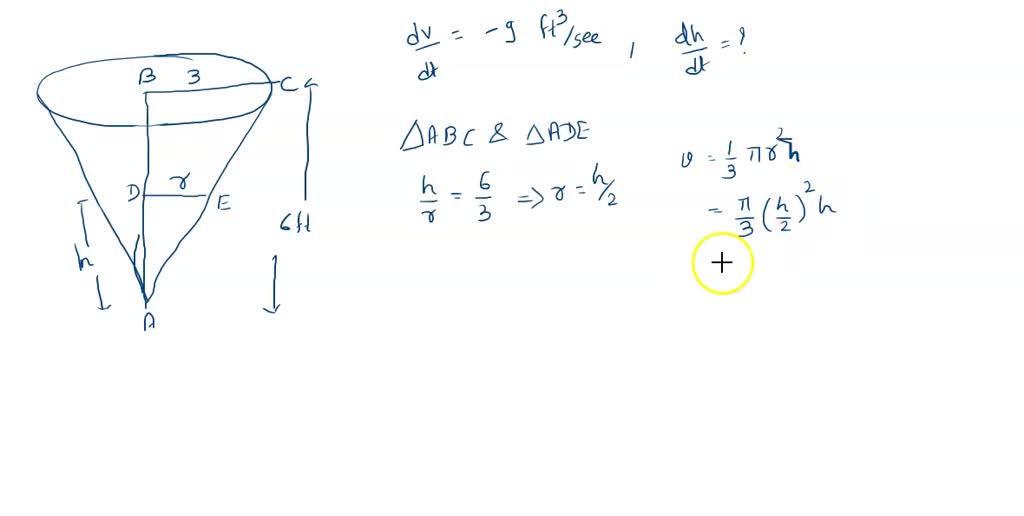 B 3 C
D r E
h
6ft
A
dv/dt = -9 ft³/sec , dh/dt = ?
△ABC & △ADE
h/r = 6/3 => r = h/2
v = 1/3 πr²h
= π/3 (h/2)² h